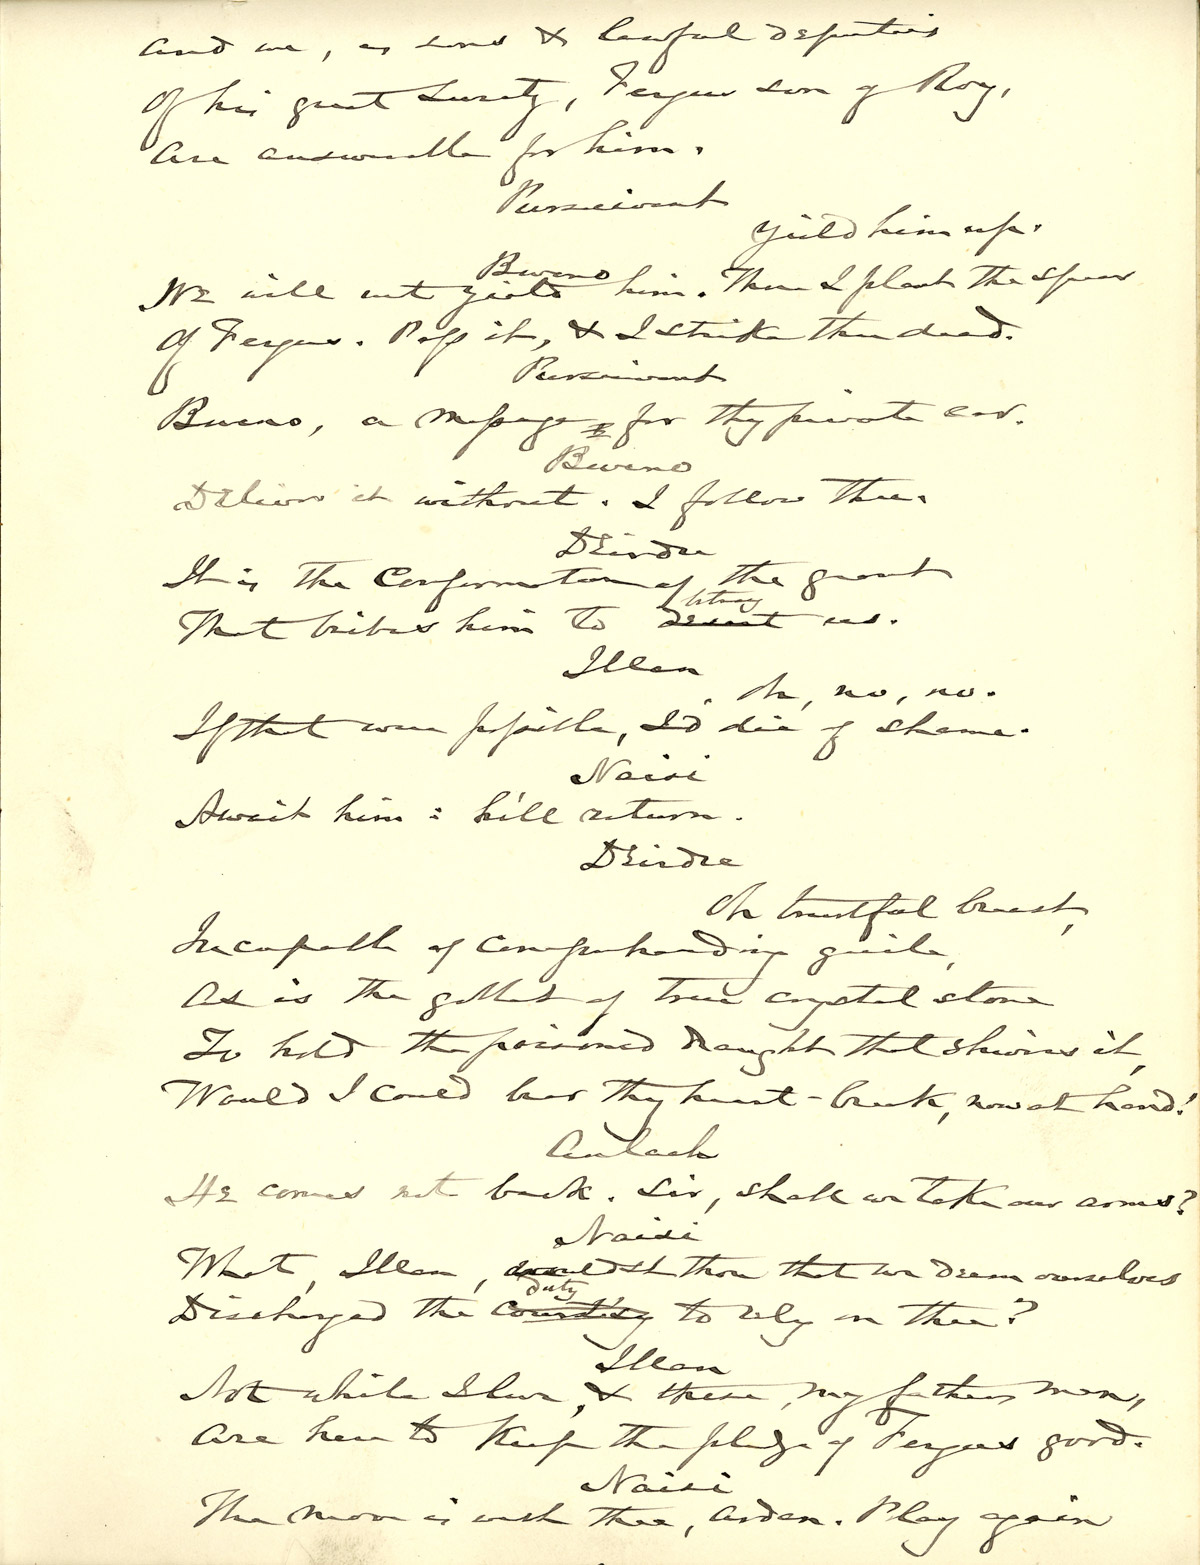 And we, as sons & lawful deputies
Of his great Surety, Fergus son of Roy,
Are answerable for him.
Pursuivant
Yield him up.
Buino
We will not yield him. There I plant the spear
Of Fergus. Pass it, & I strike thee dead.
Pursuivant
Buino, a message for thy private ear.
Buino
Deliver it without. I follow thee.
Deirdre
It is the Confirmation of the grant
betray
That bribes him to desert us.
Illan
Oh, no, no.
If that were possible, I'd die of shame.
Naisi
Await him: he'll return.
Deirdre
Oh trustful breast,
Incapable of comprehending guile,
As is the goblet of true crystal stone
To hold the poisoned draught that shivers it,
Would I could bear thy heart-break, now at hand!
Aulach
He comes not back. Sir, shall we take our arms?
Naisi
What, Illan, wouldst thou that we deem ourselves
duty
Discharged the courtesy to rely on thee?
Illan
Not while I live, & these, my father's men,
Are here to keep the pledge of Fergus good.
Naisi
The move is with thee, Ardan. Play again